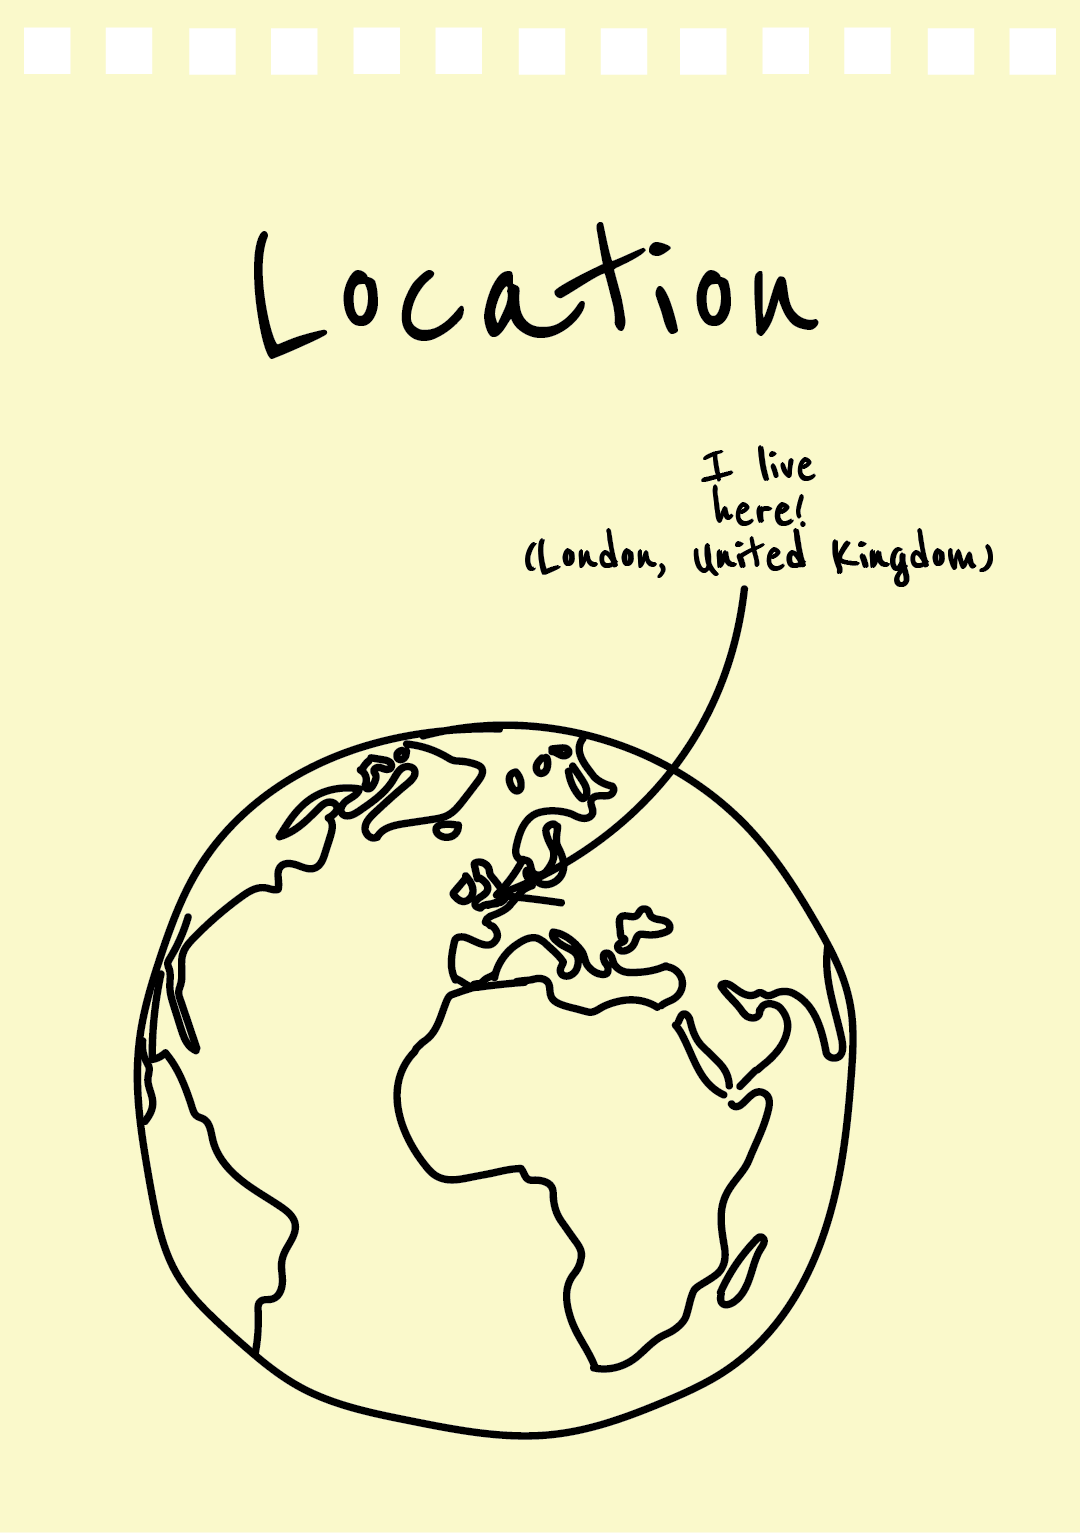 Location
I live
here!
(London, United Kingdom)